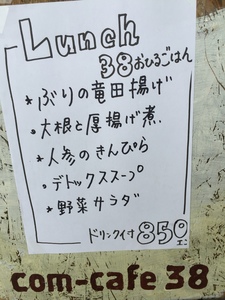 Lunch
38おひるごはん
*ぶりの竜田揚げ
*大根と厚揚げ煮.
*人参のきんぴら
*デトックススープ
*野菜サラダ
ドリンク付 850エン
com-cafe 38